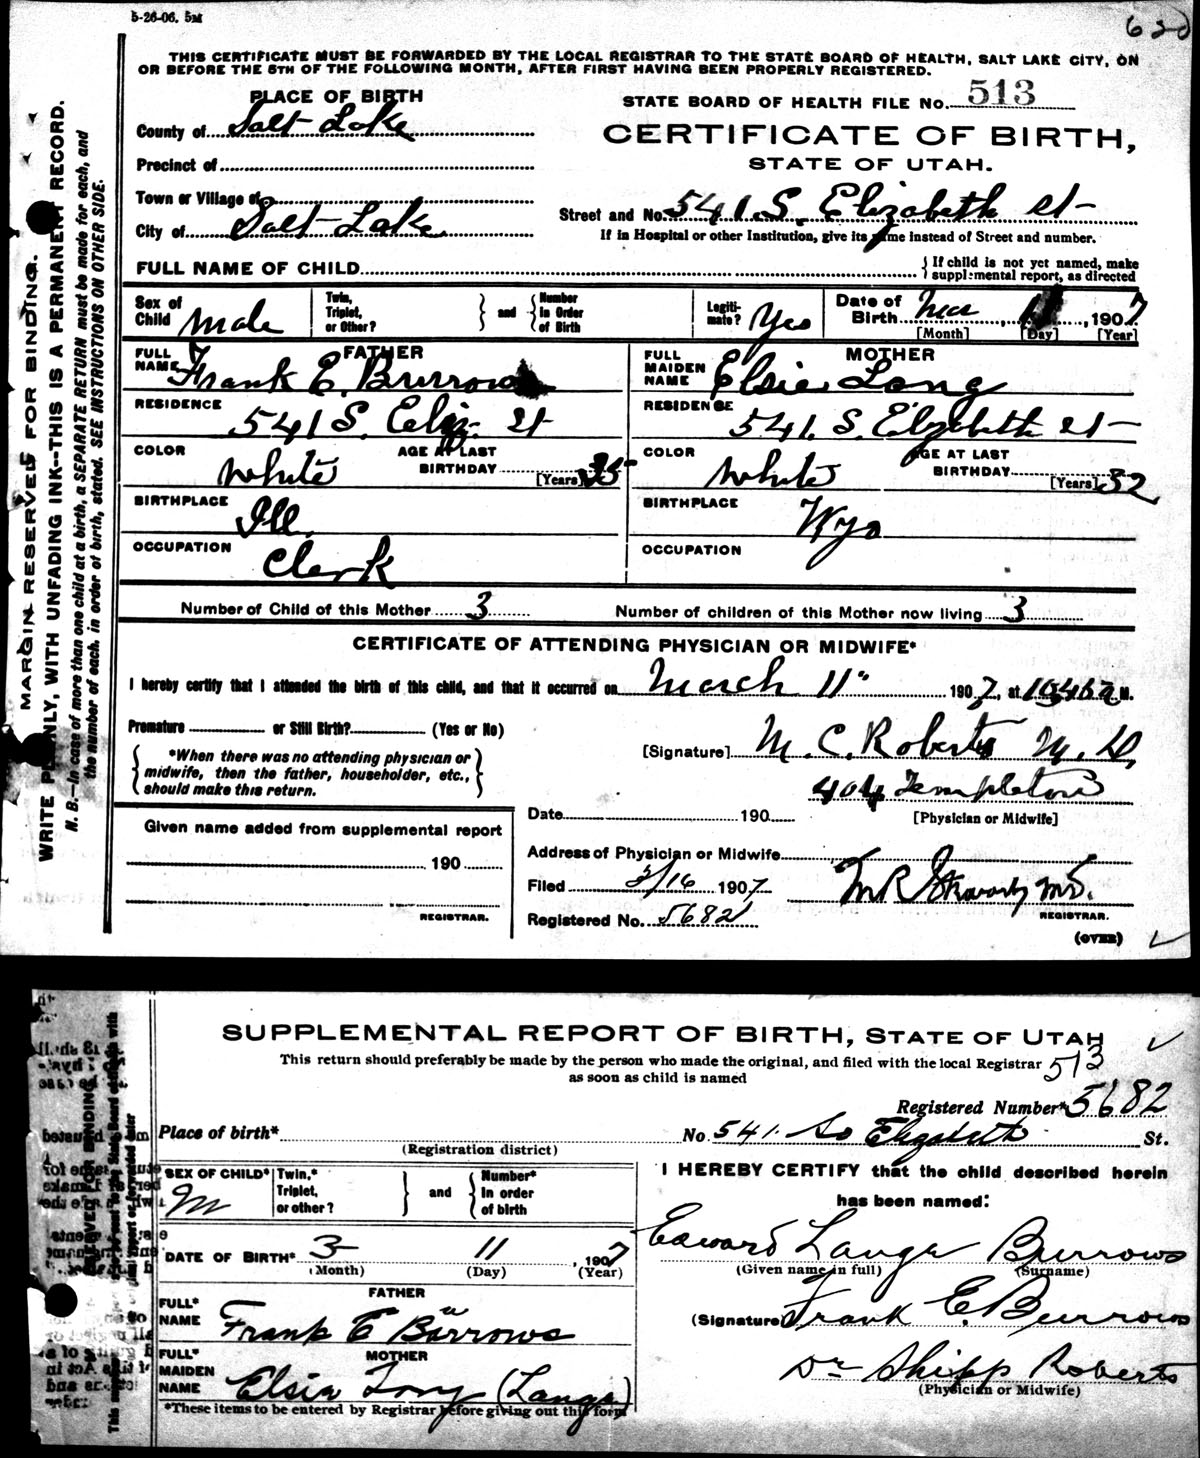 5-26-06. 5M
620
THIS CERTIFICATE MUST BE FORWARDED BY THE LOCAL REGISTRAR TO THE STATE BOARD OF HEALTH, SALT LAKE CITY, ON
OR BEFORE THE 5TH OF THE FOLLOWING MONTH, AFTER FIRST HAVING BEEN PROPERLY REGISTERED.
PLACE OF BIRTH
County of Salt Lake
Precinct of
Town or Village of
City of Salt Lake
STATE BOARD OF HEALTH FILE No. 513
CERTIFICATE OF BIRTH,
STATE OF UTAH.
Street and No. 541 S. Elizabeth st
If in Hospital or other Institution, give its name instead of Street and number.
FULL NAME OF CHILD
If child is not yet named, make
supplemental report, as directed
Sex of Child Male
Twin, Triplet, or Other?
and
Number in Order of Birth
Legitimate? Yes
Date of Birth Mar 11, 1907
[Month] [Day] [Year]
FATHER
FULL NAME Frank E. Burrows
RESIDENCE 541 S. Eliz. st
COLOR White
AGE AT LAST BIRTHDAY 35 [Years]
BIRTHPLACE Ill.
OCCUPATION Clerk
MOTHER
FULL MAIDEN NAME Elsie Long
RESIDENCE 541. S. Elizabeth st
COLOR White
AGE AT LAST BIRTHDAY [Years] 32
BIRTHPLACE Wyo
OCCUPATION
Number of Child of this Mother 3
Number of children of this Mother now living 3
CERTIFICATE OF ATTENDING PHYSICIAN OR MIDWIFE*
I hereby certify that I attended the birth of this child, and that it occurred on March 11" 1907, at M.
Premature or Still Birth? (Yes or No)
*When there was no attending physician or
midwife, then the father, householder, etc.,
should make this return.
[Signature] M. C. Roberts M. D.
404 Templeton
[Physician or Midwife]
Date 190
Given name added from supplemental report
190
REGISTRAR.
Address of Physician or Midwife
Filed 3/16 1907
Registered No. 5682
REGISTRAR.
(OVER)
MARGIN RESERVED FOR BINDING.
WRITE PLAINLY, WITH UNFADING INK--THIS IS A PERMANENT RECORD.
N. B.--In case of more than one child at a birth, a SEPARATE RETURN must be made for each, and
the number of each, in order of birth, stated. SEE INSTRUCTIONS ON OTHER SIDE.
SUPPLEMENTAL REPORT OF BIRTH, STATE OF UTAH
This return should preferably be made by the person who made the original, and filed with the local Registrar
as soon as child is named
513
Registered Number* 5682
Place of birth*
(Registration district)
No. 541 So Elizabeth St.
SEX OF CHILD* M
Twin,* Triplet, or other?
and
Number* in order of birth
DATE OF BIRTH* 3 11, 1907
(Month) (Day) (Year)
FATHER
FULL* NAME Frank E Burrows
MOTHER
FULL* MAIDEN NAME Elsie Long (Lange)
*These items to be entered by Registrar before giving out this form
I HEREBY CERTIFY that the child described herein
has been named:
Edward Lange Burrows
(Given name in full) (Surname)
(Signature) Frank E. Burrows
Dr Shipp Roberts
(Physician or Midwife)